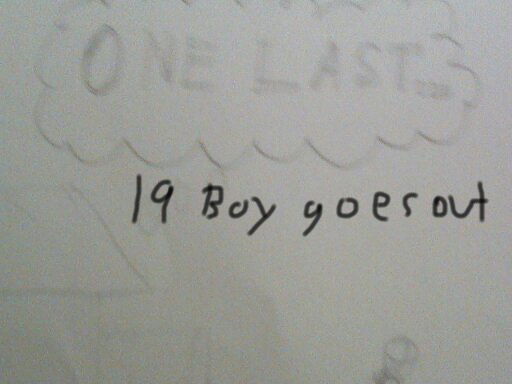 ONE LAST...
19 Boy goes out